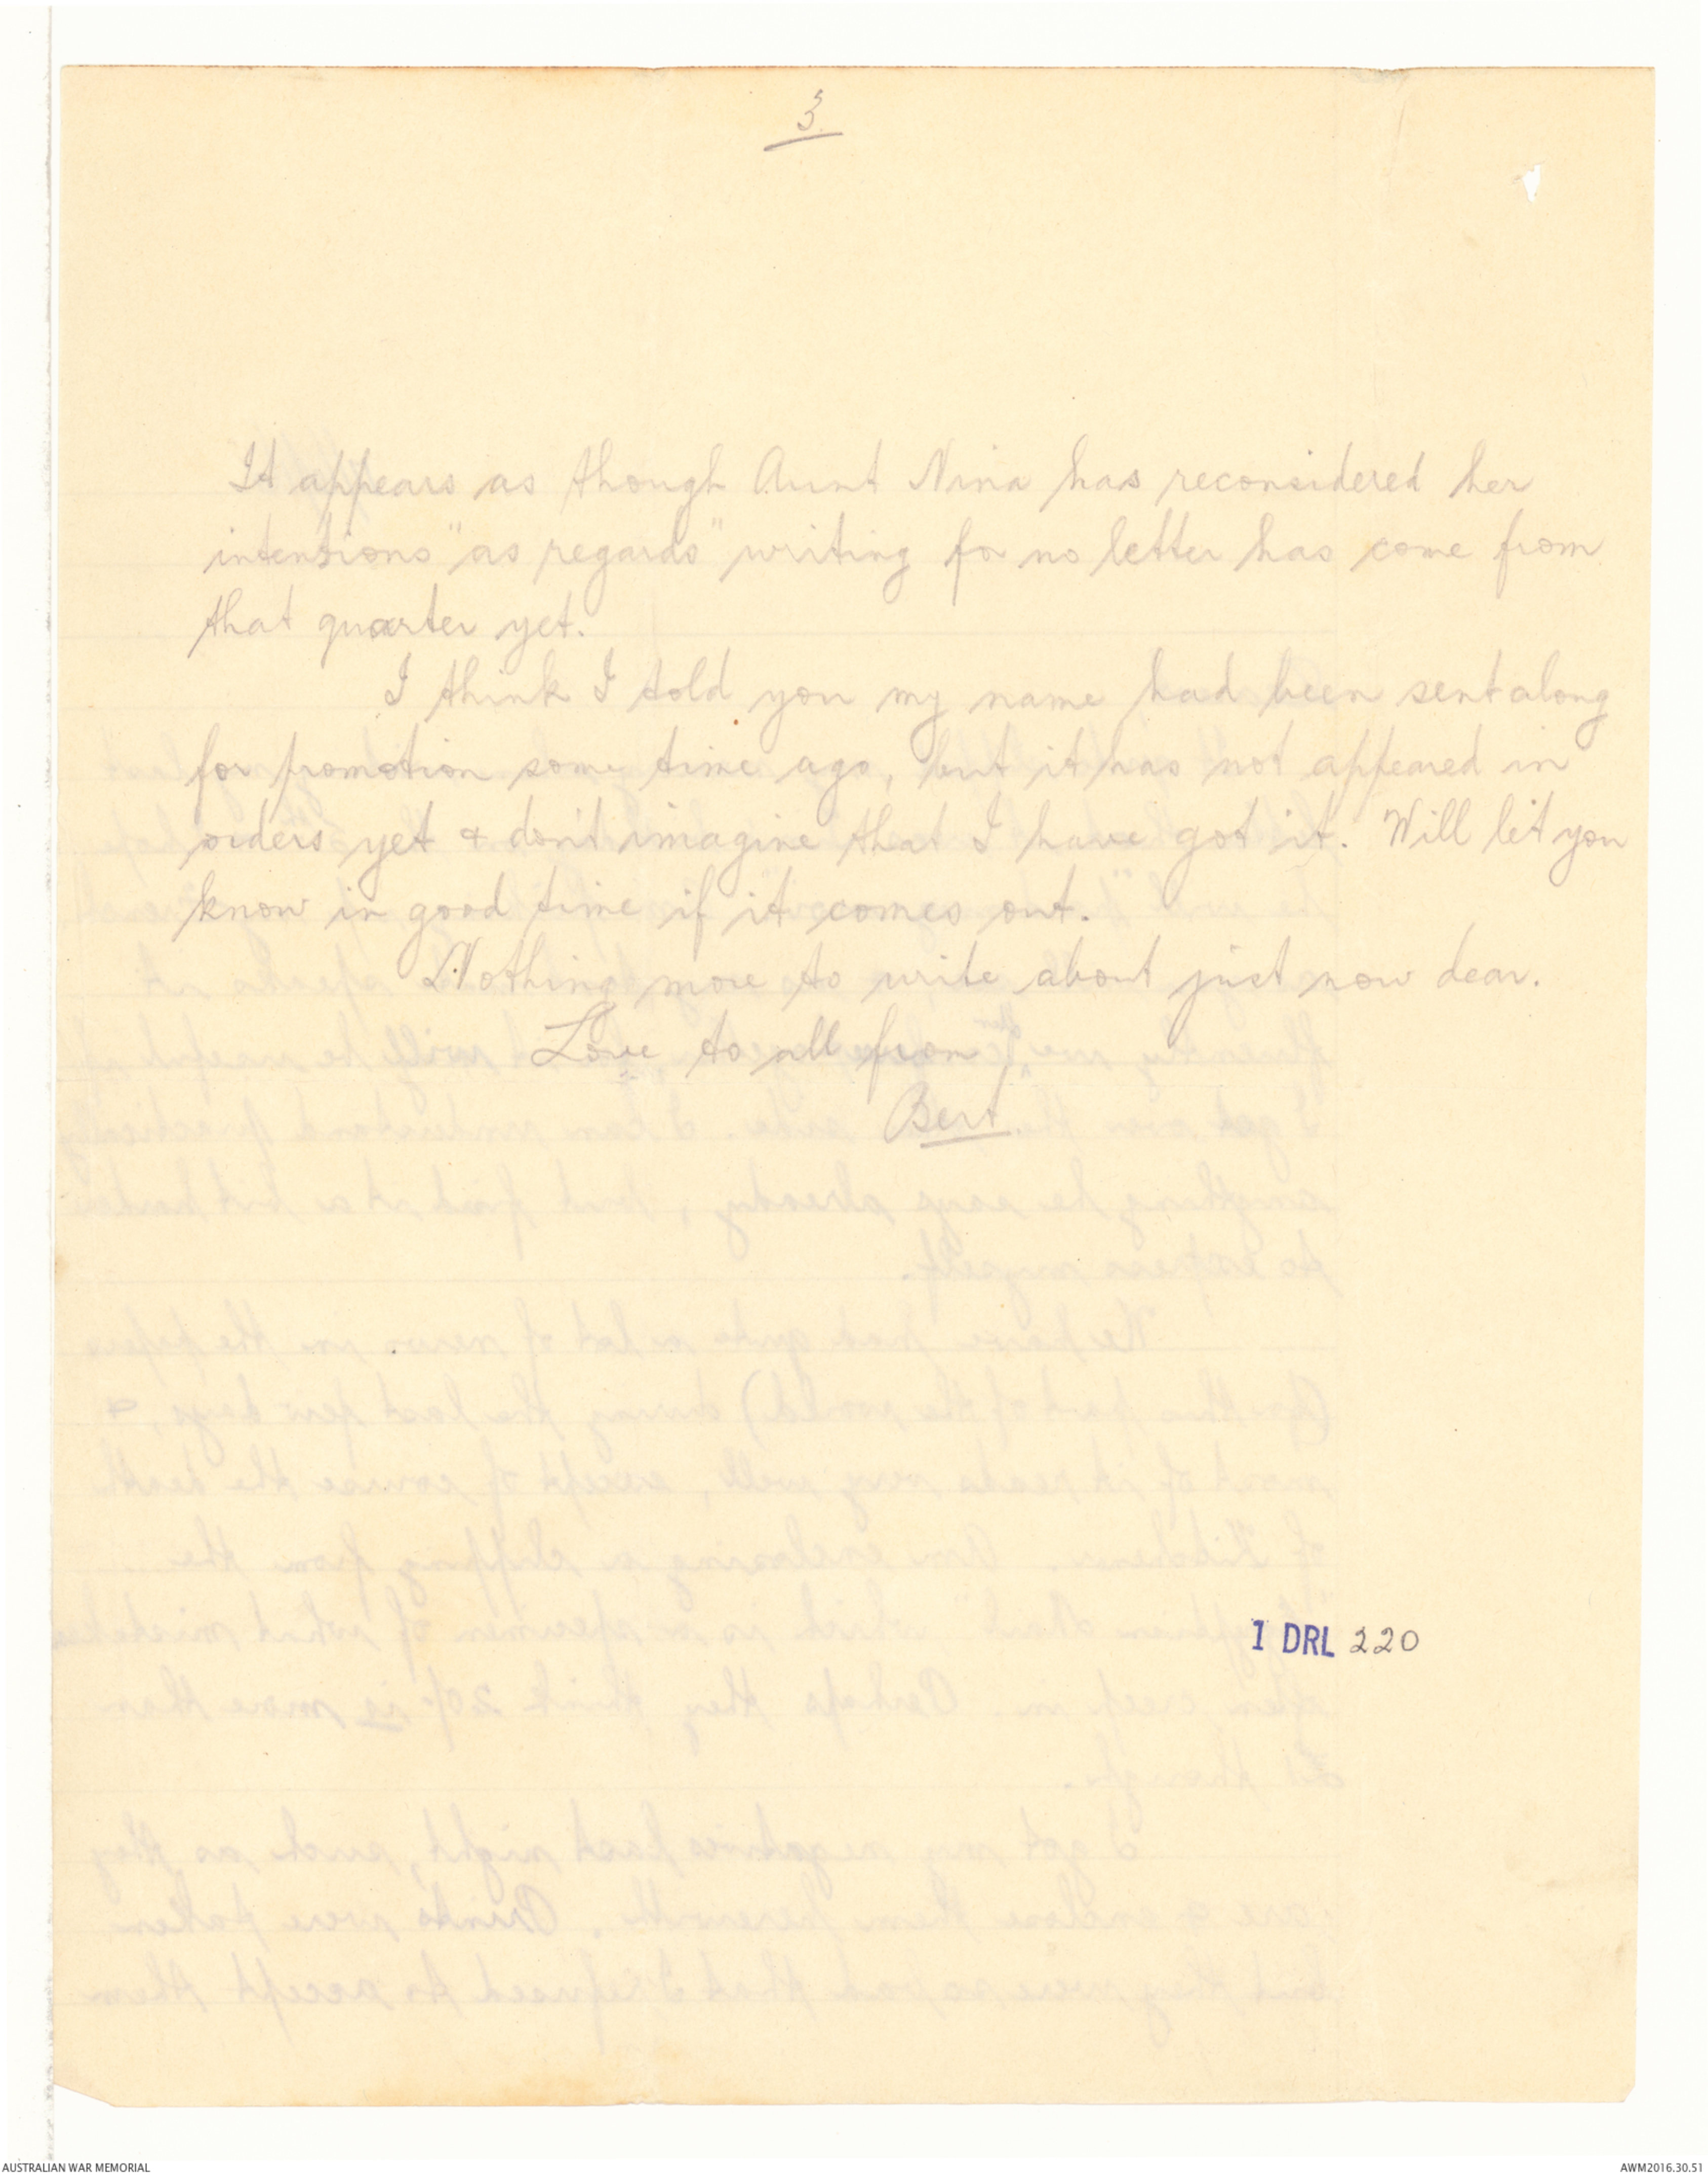 3
It appears as though Aunt Nina has reconsidered her
intentions "as regards" writing for no letter has come from
that quarter yet.
I think I told you my name had been sent along
for promotion some time ago, but it has not appeared in
orders yet & don't imagine that I have got it. Will let you
know in good time if it comes out.
Nothing more to write about just now dear.
Love to all from
Bert.
1 DRL 220
AUSTRALIAN WAR MEMORIAL
AWM2016.30.51